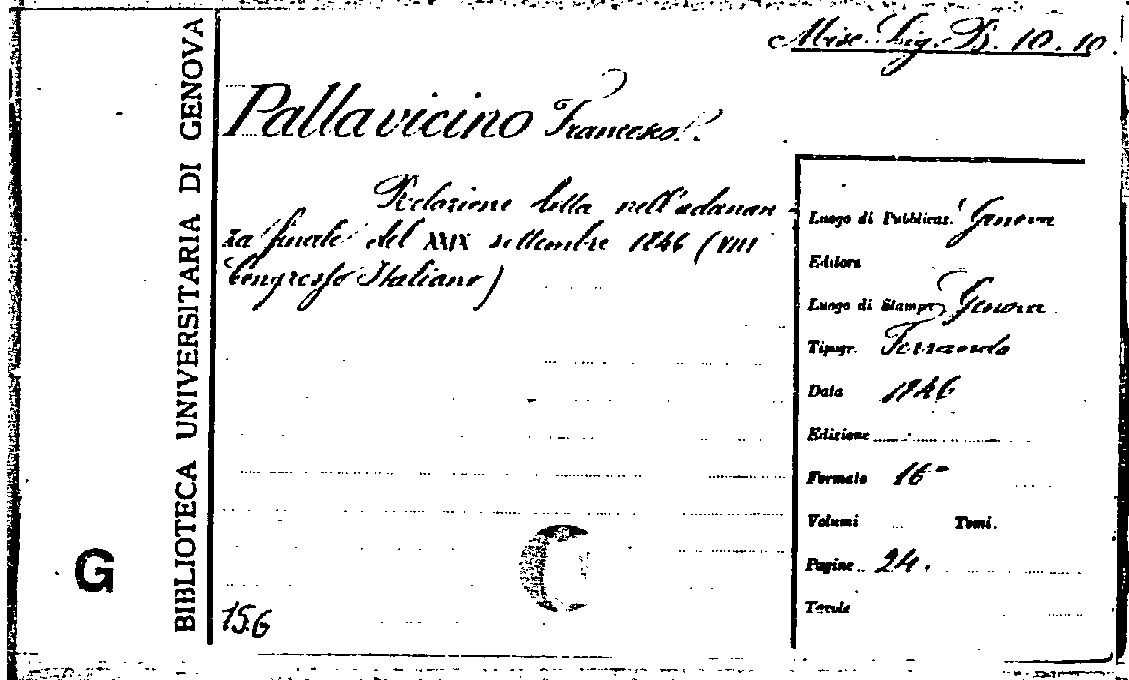 Misc. Lig. B. 10. 10
BIBLIOTECA UNIVERSITARIA DI GENOVA
Pallavicino Francesco.
Relazione letta nell'adunan-
za finale del XXIX settembre 1846 (VIII
Congresso Italiano)
Luogo di Pubblicaz. Genova
Editore
Luogo di Stampa Genova
Tipogr. Ferrando
Data 1846
Edizione
Formato 16º
Volumi Tomi.
Pagine 24.
Tavole
G
156